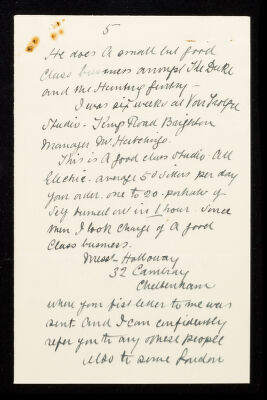 5
He does a small but good
class business amongst The Duke
and the Hunting gentry -
I was six weeks at Van
Studio. King Road Brighton
Manager Mr Hutchings.
This is a good class Studio. All
Electric. average 50 sitters per day
your order. one to 20. portraits of
self turned out in 1 hour. Since
then I took charge of a good
Class business.
Messrs Holloway
32 Cambray
Cheltenham
where your first letter to me was
sent and I can confidently
refer you to any of these people
also to some London